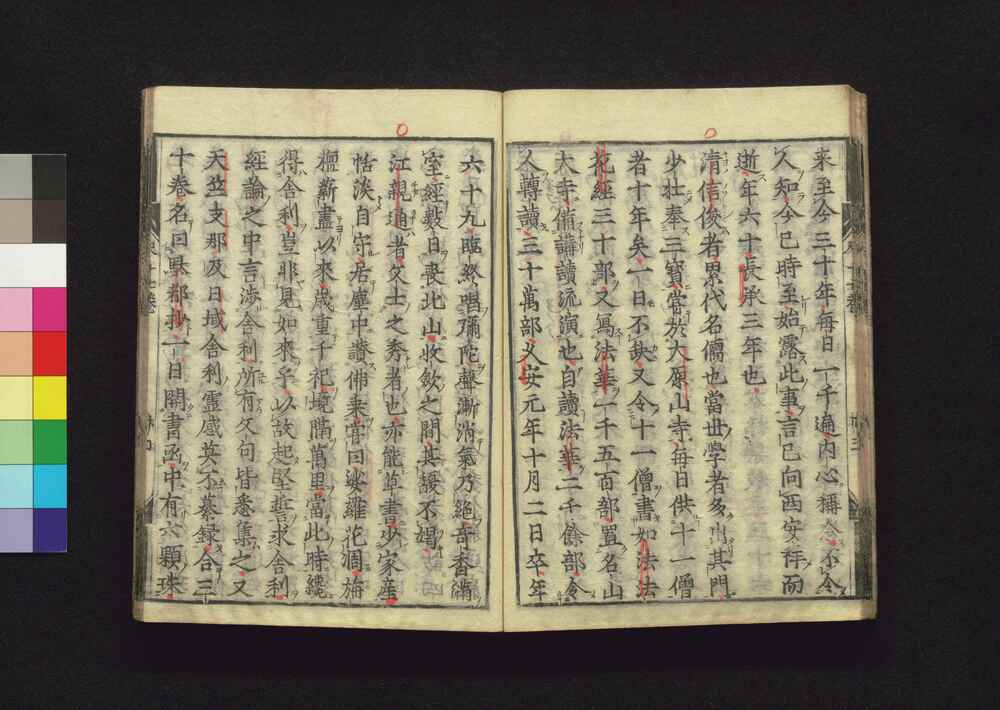 來至今三十年每日一千遍内心稱念不令
人知今已時至始露此事言已向西安祥而
逝年六十長承三年也
清信俊者累代名儒也當世學者多出其門
少壯奉三寳常於大原山寺每日供十一僧
者十年矣一日不缺又令十一僧書如法法
花經三十部又寫法華一千五百部置名山
大寺備講讀流演也自讀法華二千餘部令
人轉讀三十萬部久安元年十月二日卒年
六十九臨終唱彌陀聲漸消氣乃絶奇香滿
室經數日喪北山收歛之間其馥不竭
江親通者文士之秀者也亦能草書少家産
恬淡自守居塵中讃佛乗甞曰娑羅花凋旃
檀薪盡以來歳重千祀境隔萬里當此時纔
得舍利豈非見如來乎以故起堅誓求舍利
經論之中言渉舍利所有文句皆悉集之又
天竺支那及日域舍利靈感莫不纂録合三
十卷名曰駄都抄一日開書函中有六顆珠